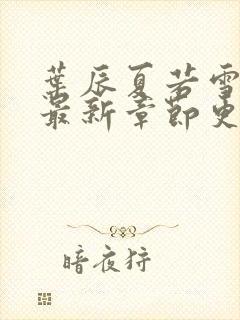 葉辰夏若雪
最新章節更
暗夜狩